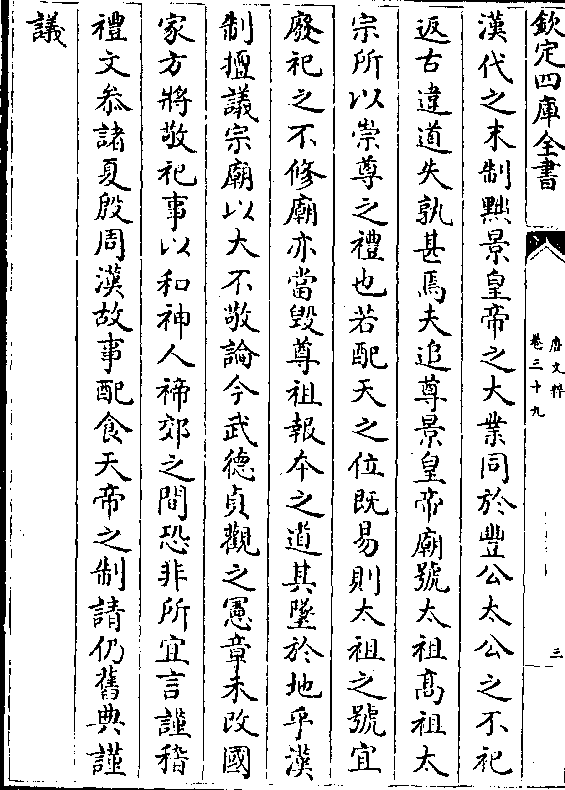 欽定四庫全書
唐文粹
卷三十九
三
漢代之末制黜景皇帝之大業同於豐公太公之不祀
返古違道失孰甚焉夫追尊景皇帝廟號太祖高祖太
宗所以崇尊之禮也若配天之位既易則太祖之號宜
廢祀之不修廟亦當毀尊祖報本之道其墜於地乎漢
制擅議宗廟以大不敬論今武德貞觀之憲章未改國
家方將敬祀事以和神人禘郊之間恐非所宜言謹稽
禮文叅諸夏殷周漢故事配食天帝之制請仍舊典謹
議